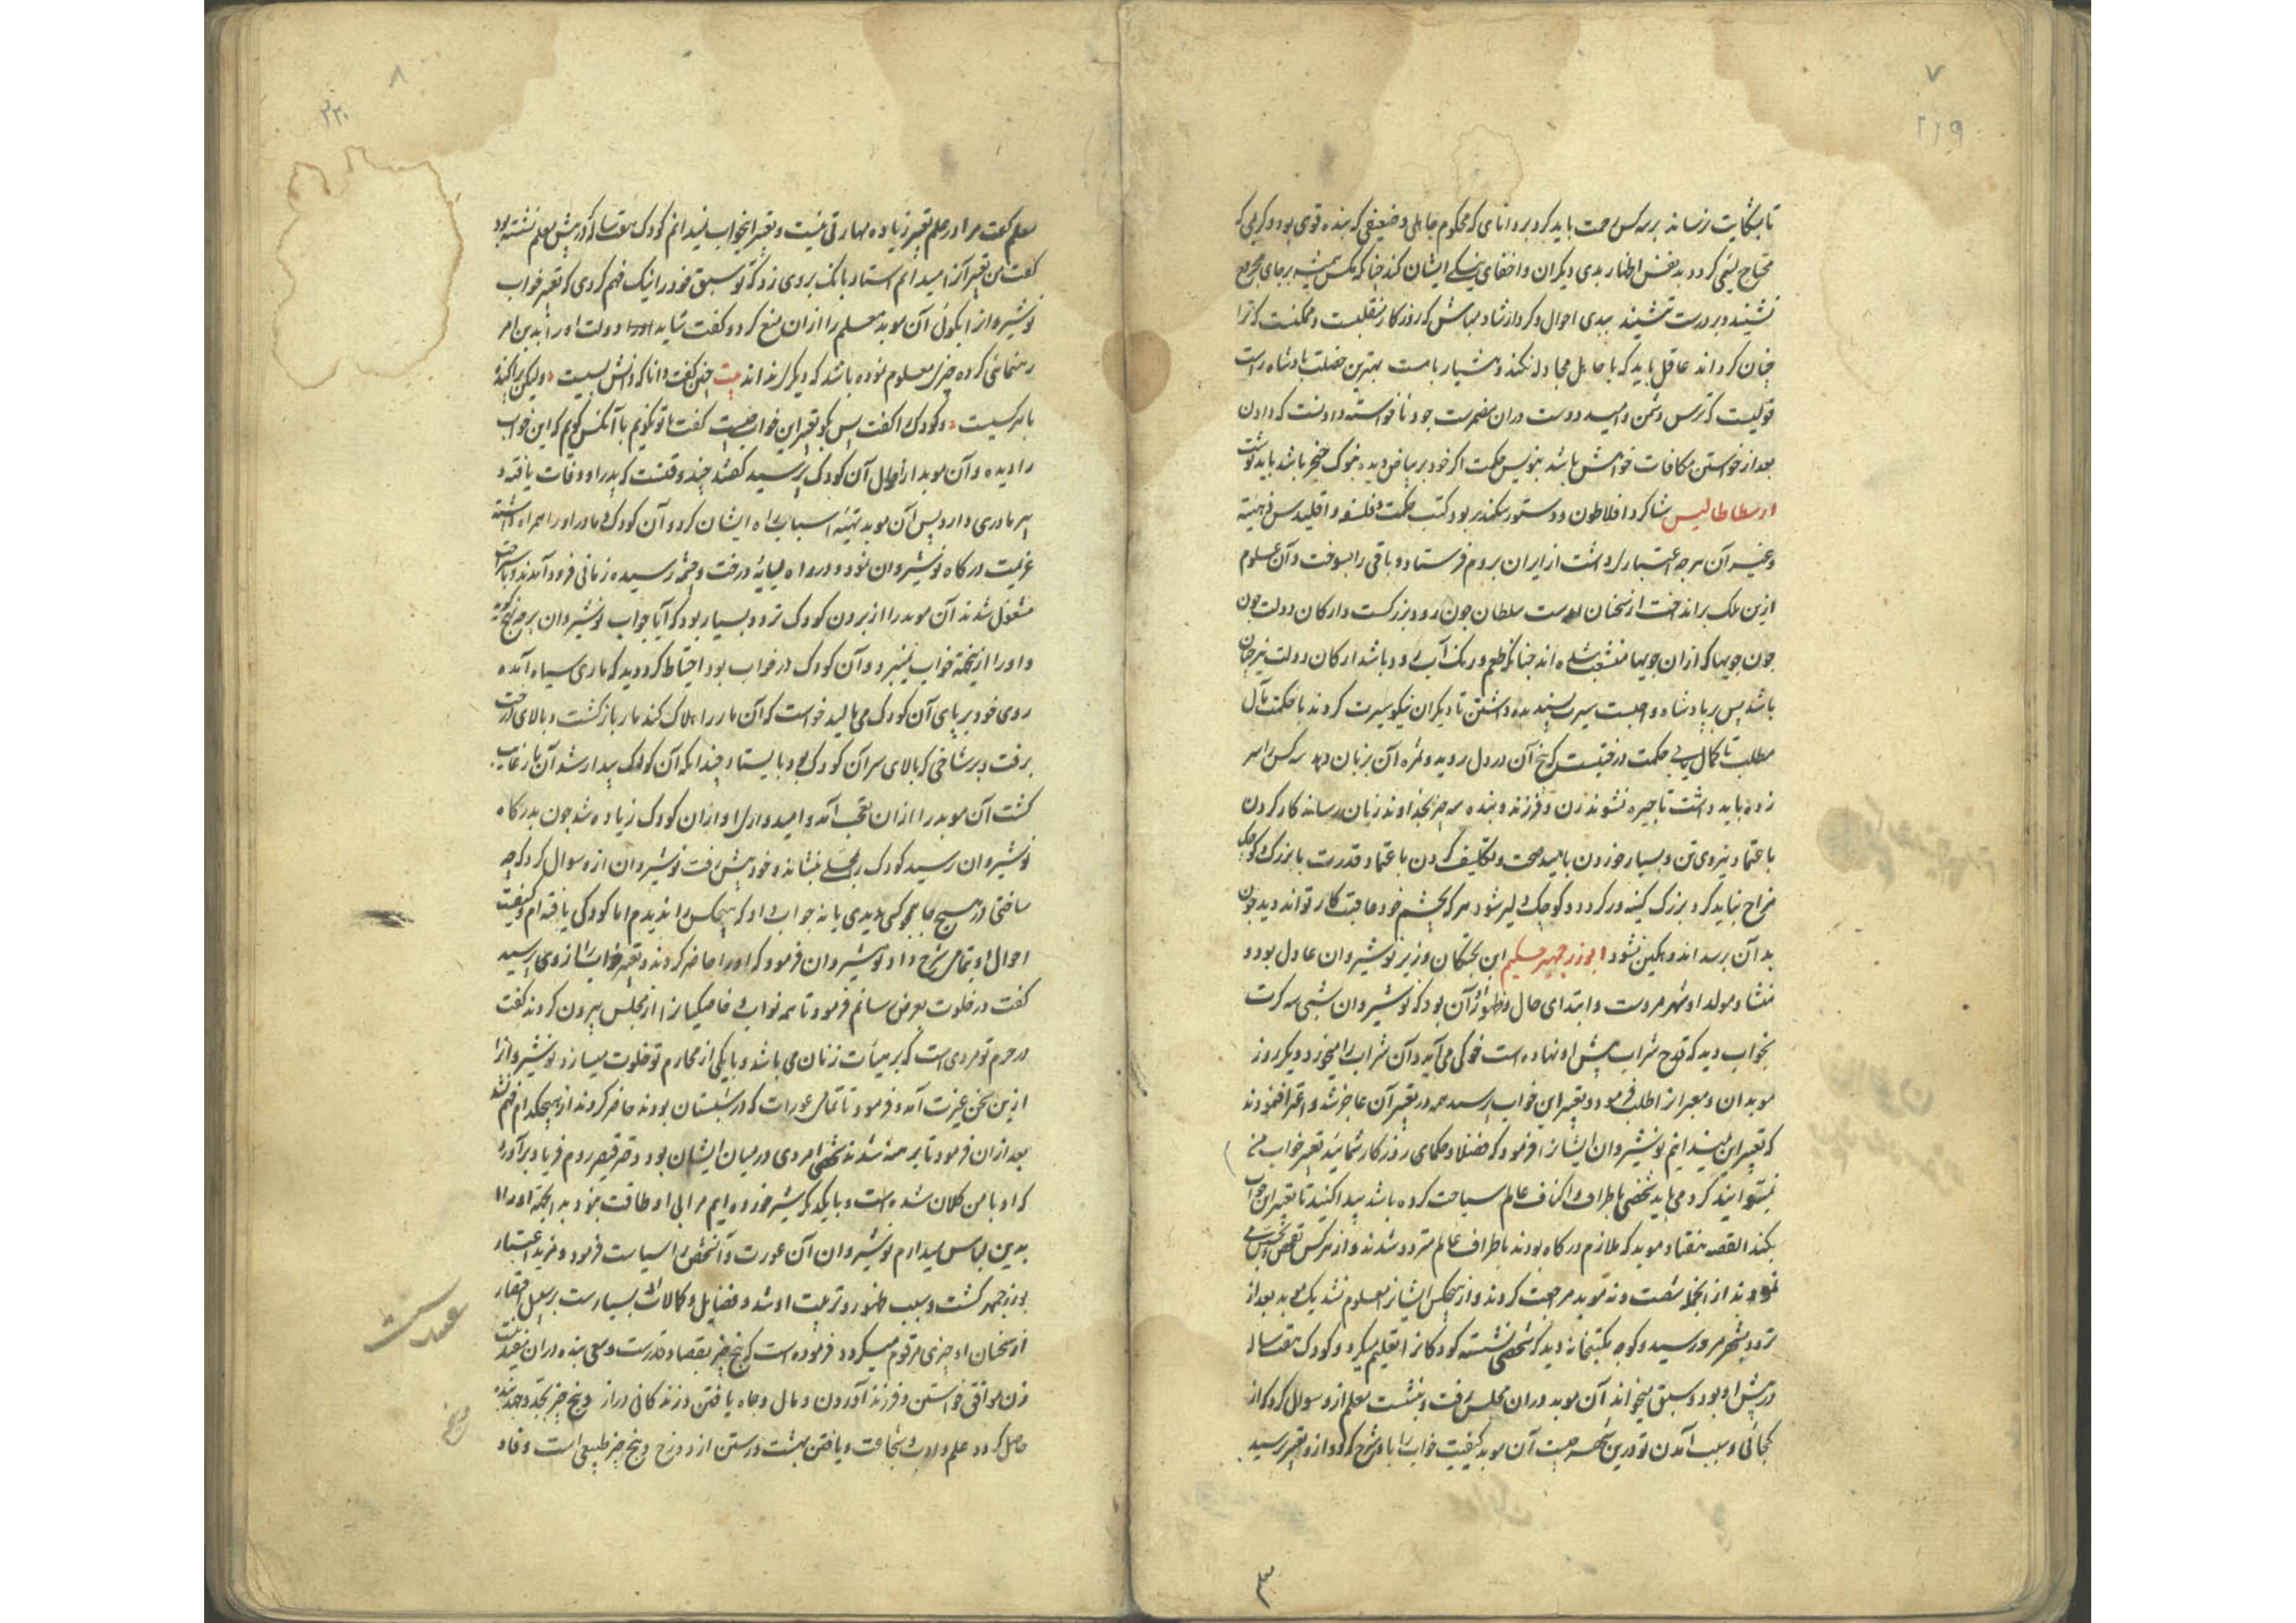 ۷
۲۱۹
تا بشکایت نرساند بر سه کس رحمت باید کرد بر دانای که محکوم جاهلی و ضعیفی که بنده قوی بود و کریمی که
محتاج لئیمی کردد بد نفس اظهار بدی دیکران و اخفای نیکی ایشان کند چنانکه مکس همیشه بر جای مجروح
نشیند و بر درست ننشیند ببدی احوال و کردار شاد مباش که روزکار منقلبست و ممکنست که ترا
چنان کرداند عاقل باید که با جاهل مجادله نکند و هشیار با مست بهترین خصلت پادشاه راست
قولیست که ترس دشمن و امید دوست دران مضمرست جود ناخواسته دادنست که دادن
بعد از خواستن مکافات خواهش باشد بنویس حکمت اکر خود بر بیاض دیده بنوک خنجر باشد باید نوشت
ارسطاطالیس شاکرد افلاطون و دستور سکندر بود کتب حکمت و فلسفه و اقلیدس و هیئه
و غیر آن هر چه اعتباری داشت از ایران بروم فرستاد و باقی را بسوخت و آن علوم
ازین ملک برانداخت از سخنان اوست سلطان چون رود بزرکست و ارکان دولت چون
چون جویها که ازان جویها منشعب شده اند چنانکه طعم و رنک آب رود باشد ارکان دولت نیز چنان
باشد پس بر پادشاه واجبست سیرت پسندیده داشتن تا دیکران نیکو سیرت کردند با حکمت مال
مطلب تا کمال یابی حکمت درختیست که بیخ آن در دل روید و ثمره آن بزبان دهد سه کس را سر
زده باید داشت تا چیره نشوند زن و فرزند و بنده سه چیز بخداوند زیان رساند کار کردن
باعتماد نیروی تن و بسیار خوردن بامید صحت و تکلیف کردن باعتماد قدرت با بزرک و کوچک
مزاح نباید کرد بزرک کینه ور کردد و کوچک دلیر شود هر که بچشم خود عاقبت کار تواند دید چون
بدان برسد اندوهکین نشود ابوزرجمهر حکیم ابن بختکان وزیر نوشیروان عادل بود و
منشا و مولد او شهر مروست و ابتدای حال و ظهور او آن بود که نوشیروان شبی سه کرت
بخواب دید که قدح شراب پیش او نهاده است خوکی می آید و آن شراب را میخورد دیکر روز
موبدان و معبران را طلب فرمود و تعبیر این خواب پرسید همه در تعبیر آن عاجز شد و اعتراف نمودند
که تعبیر این نمیدانیم نوشیروان ایشانرا فرمود که فضلا و حکمای روزکار شمائید تعبیر خواب من
نمیتوانید کرد می باید شخصی باطراف و اکناف عالم سیاحت کرده باشد پیدا کنید تا تعبیر این خواب
بکند القصه هفتاد موبد که ملازم درکاه بودند باطراف عالم متردد شدند و از هر کس تفحص و تجسس می
نمودند از انجمله شصت و نه موبد مراجعت کردند و از هیچکس ایشانرا معلوم نشد یک موبد بعد از
تردد بشهر مرو رسید و کوچه بمکتبخانه دید که شخصی نشسته کودکانرا تعلیم میکرد و کودک هفت ساله
در پیش او بود و سبق میخواند آن موبد دران مجلس رفت و بنشست معلم ازو سوال کرد که از
کجائی و سبب آمدن تو درین شهر چیست آن موبد کیفیت خواب را با او شرح کرد و ازو تعبیر پرسید
۸
۲۲۰
معلم کفت مرا در علم تعبیر زیاده مهارتی نیست و تعبیر اینخواب نمیدانم کودک هفت ساله که در پیش معلم نشسته بود
کفت من تعبیر آنرا میدانم استاد بانک بر وی زد که تو سبق خود را نیک فهم کردی که تعبیر خواب
نوشیروانرا بکوئی آن موبد معلم را ازان منع کرد و کفت شاید او را دولت او را بدین امر
رهنمائی کرده چیزی معلوم نموده باشد که دیکری نداند بیت چنین کفت دانا که دانش بسیست و لیکن پراکنده
با هر کسیست و کودک را کفت پس بکو تعبیر این خواب چیست کفت با تو نکویم با آنکس کویم که این خواب
را دیده و آن موبد از احوال آن کودک پرسید کفتند چند وقتست که پدر او وفات یافته و
پیر مادری دارد پس آن موبد تهیه اسباب راه ایشان کرد و آن کودک و مادر او را همراه داشته
عزیمت درکاه نوشیروان نمود و در راه بسایه درخت و چشمه رسیده زمانی فرود آمدند و باستراحت
مشغول شدند آن موبد را از بردن کودک تردد بسیار بود که آیا جواب نوشیروان بر چه نهج کوید
و او را از نتیجه خواب نمیبرد و آن کودک در خواب بود احتیاط کرد دید که ماری سیاه آمده
روی خود بر پای آن کودک می مالید خواست که آن مار را هلاک کند مار بازکشت و بالای درخت
برفت و بر شاخی که بالای سر آن کودک بود بایستاد چندانکه آن کودک بیدار شد آن مار غایب
کشت آن موبد را ازان تعجب آمد و امیدواری او ازان کودک زیاده شد چون بدرکاه
نوشیروان رسید کودک را بمحلی بنشاند و خود پیش رفت نوشیروان ازو سوال کرد که چه
ساختی در هیچ جا همچو کسی دیدی یا نه جواب داد که هیچکس را ندیدم اما کودکی یافته ام و کیفیت
احوال او بتمامی شرح داد نوشیروان فرمود که او را حاضر کردند و تعبیر خواب را از وی پرسید
کفت در خلوت بعرض رسانم فرمود تا همه نواب و خاصیکیانرا از مجلس بیرون کردند کفت
در حرم تو مردی است که بر هیأت زنان می باشد و با یکی از محارم تو خلوت میسازد نوشیروانرا
ازین سخن غیرت آمد و فرمود تا تمامی عورات که در شبستان بودند حاضر کردند از هیچکدام فهم نشد
بعد ازان فرمود تا برهنه شدند شخصی امردی در میان ایشان بود دختر قیصر روم فریاد برآورد
که او با من کلان شده است و با یکدیکر شیر خورده ایم مرا بی او طاقت نبود بدانجهة او را
بدین لباس میدارم نوشیروان آن عورت و آنشخص را سیاست فرمود و مزید اعتبار
بوزرجمهر کشت و سبب ظهور و تربیت او شد و فضایل و کمالات او بسیارست بر سبیل اختصار
از سخنان او چیزی مرقوم میکردد فرموده است که پنج چیز بقضا و قدرست و سعی بنده دران نیفتد
زن موافق خواستن و فرزند آوردن و مال و جاه یافتن و زندکانی دراز و پنج چیز بجد و جهد بنده
حاصل کردد علم و ادب و شجاعت و یافتن بهشت و رستن از دوزخ و پنج چیز طبیعی است وفا و